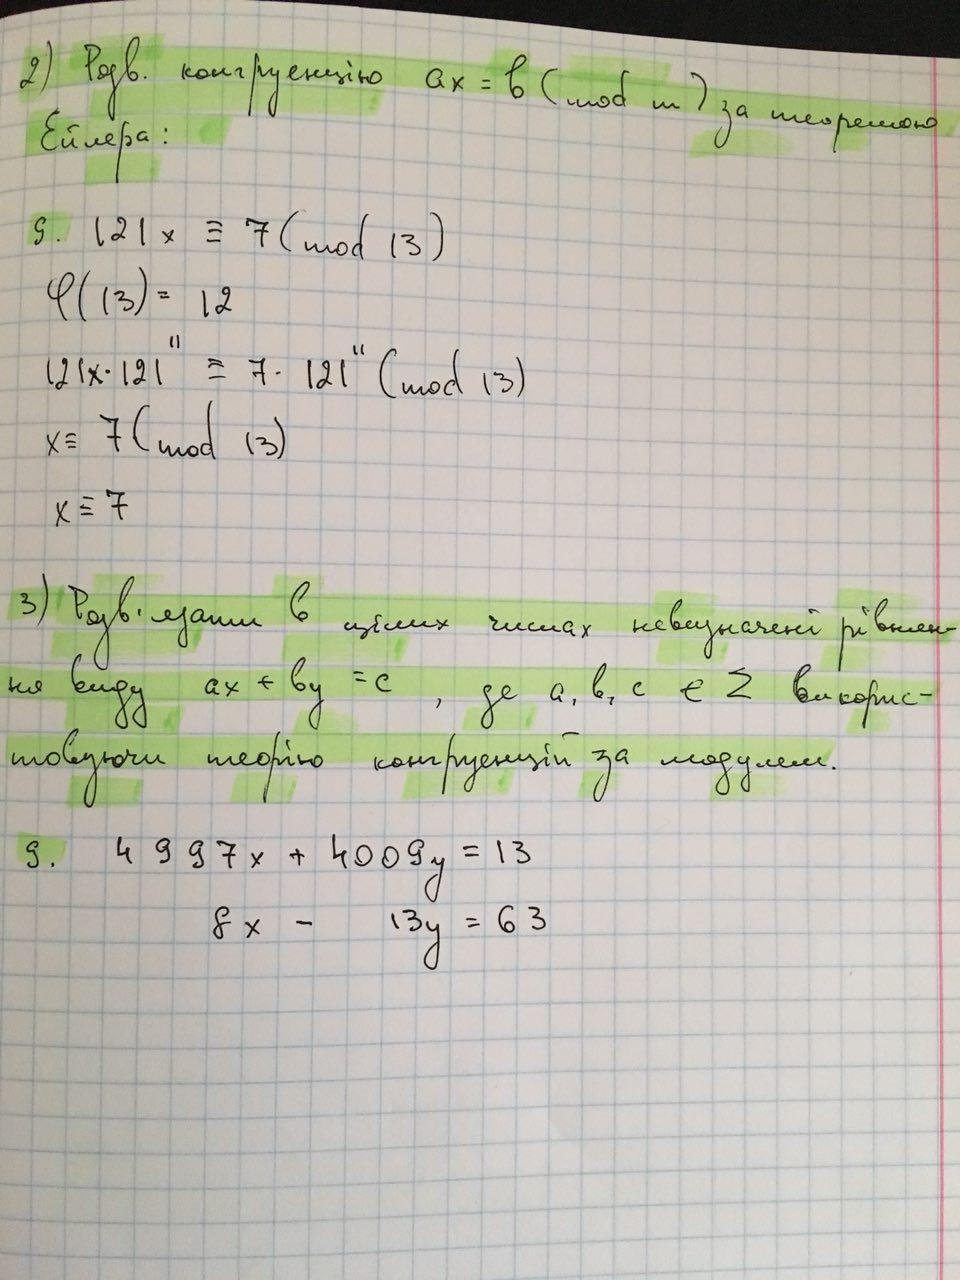 2) Розв. конгруенцію ax = b (mod m) за теоремою
Ейлера:
9. 121x ≡ 7 (mod 13)
φ(13) = 12
121x · 121¹¹ ≡ 7 · 121¹¹ (mod 13)
x ≡ 7 (mod 13)
x ≡ 7
3) Розв'язати в цілих числах невизначені рівнян-
ня виду ax + by = c, де a, b, c ∈ Z викорис-
товуючи теорію конгруенцій за модулем.
9. 4997x + 4009y = 13
8x - 13y = 63